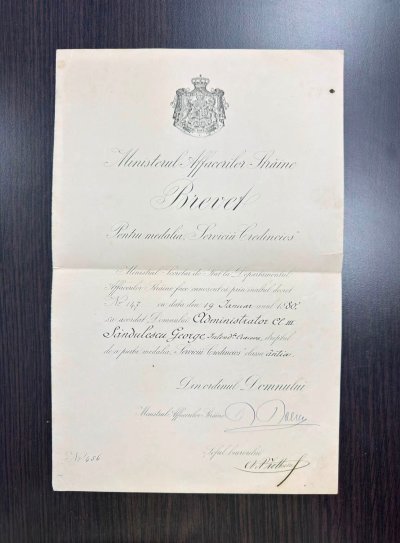 Ministerul Affacerilor Străine
Brevet
Pentru medalia „Serviciu Credincios"
Ministrul Secretar de Stat la Departamentul
Affacerilor Străine face cunoscut că prin înaltul decret
No. 147 cu data din 19 Ianuar anul 1930,
s'a acordat Domnului Administrator Cl. III
Săndulescu George dreptul
de a purta medalia „Serviciu Credincios" clasa
Din ordinul Domnului
Ministrul Affacerilor Străine
Șeful biuroului
No. 456